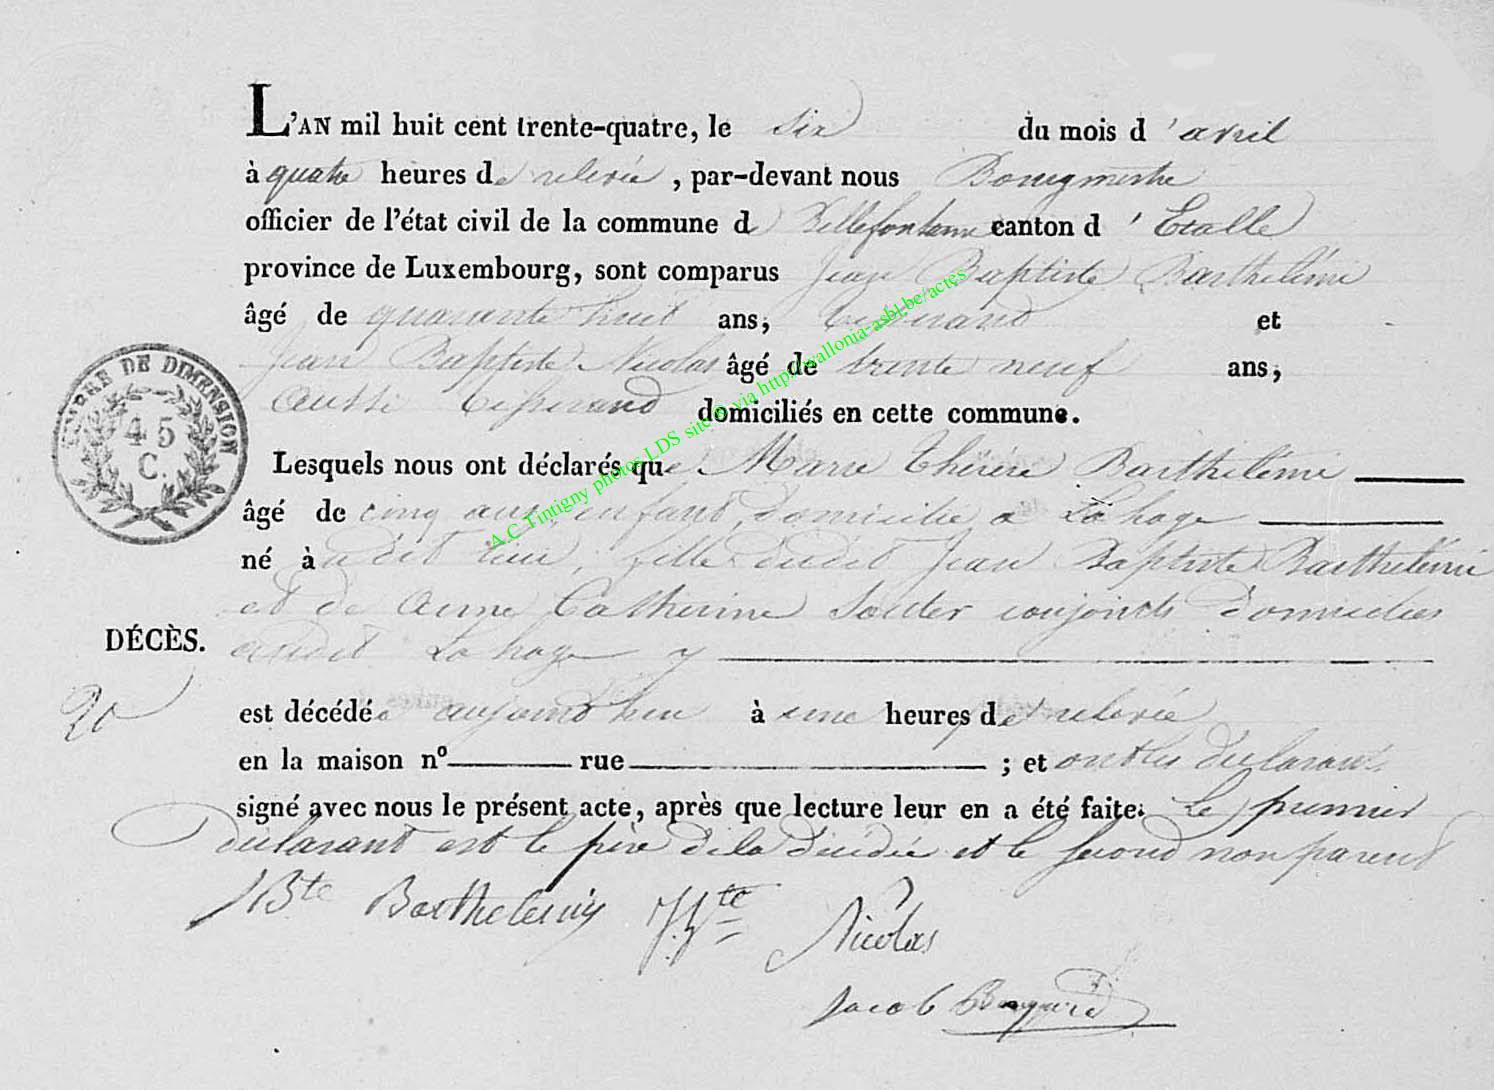 L'AN mil huit cent trente-quatre, le six du mois d'avril
à quatre heures de relevée, par-devant nous Bourgmestre
officier de l'état civil de la commune de Bellefontaine canton d'Etalle
province de Luxembourg, sont comparus Jean Baptiste Barthelémi
âgé de quarante huit ans, tisserand et
Jean Baptiste Nicolas âgé de trente neuf ans,
aussi tisserand domiciliés en cette commune.
Lesquels nous ont déclarés que Marie Thérèse Barthelémi
âgé de cinq ans, enfant, domiciliée a Lahage
né à udit lieu, fille dudit Jean Baptiste Barthelémi
et de Anne Catherine Souder conjoints domiciliés
audit Lahage
DÉCÈS.
20
est décédée aujourd'hui à une heures de relevée
en la maison nº rue ; et ont les déclarants
signé avec nous le présent acte, après que lecture leur en a été faite. Le premier
déclarant est le père de la décédée et le second non parent
JBte Barthelemy JBte Nicolas
Jacob
TIMBRE DE DIMENSION
45
C.
A.C Tintigny photos LDS site @ via http://wallonia-asbl.be/actes